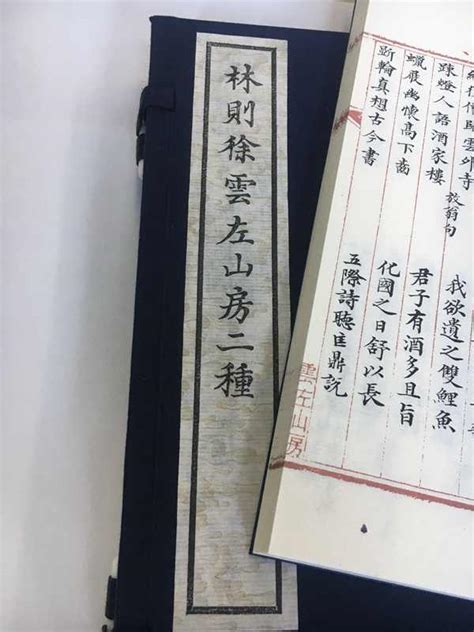 林則徐雲左山房二種
僧歸雲外寺
疎燈人語酒家樓
放翁句
蠟屐幽懷高下齒
斵輪真想古今書
我欲遺之雙鯉魚
君子有酒多且旨
化國之日舒以長
五際詩聽匡鼎說
雲左山房